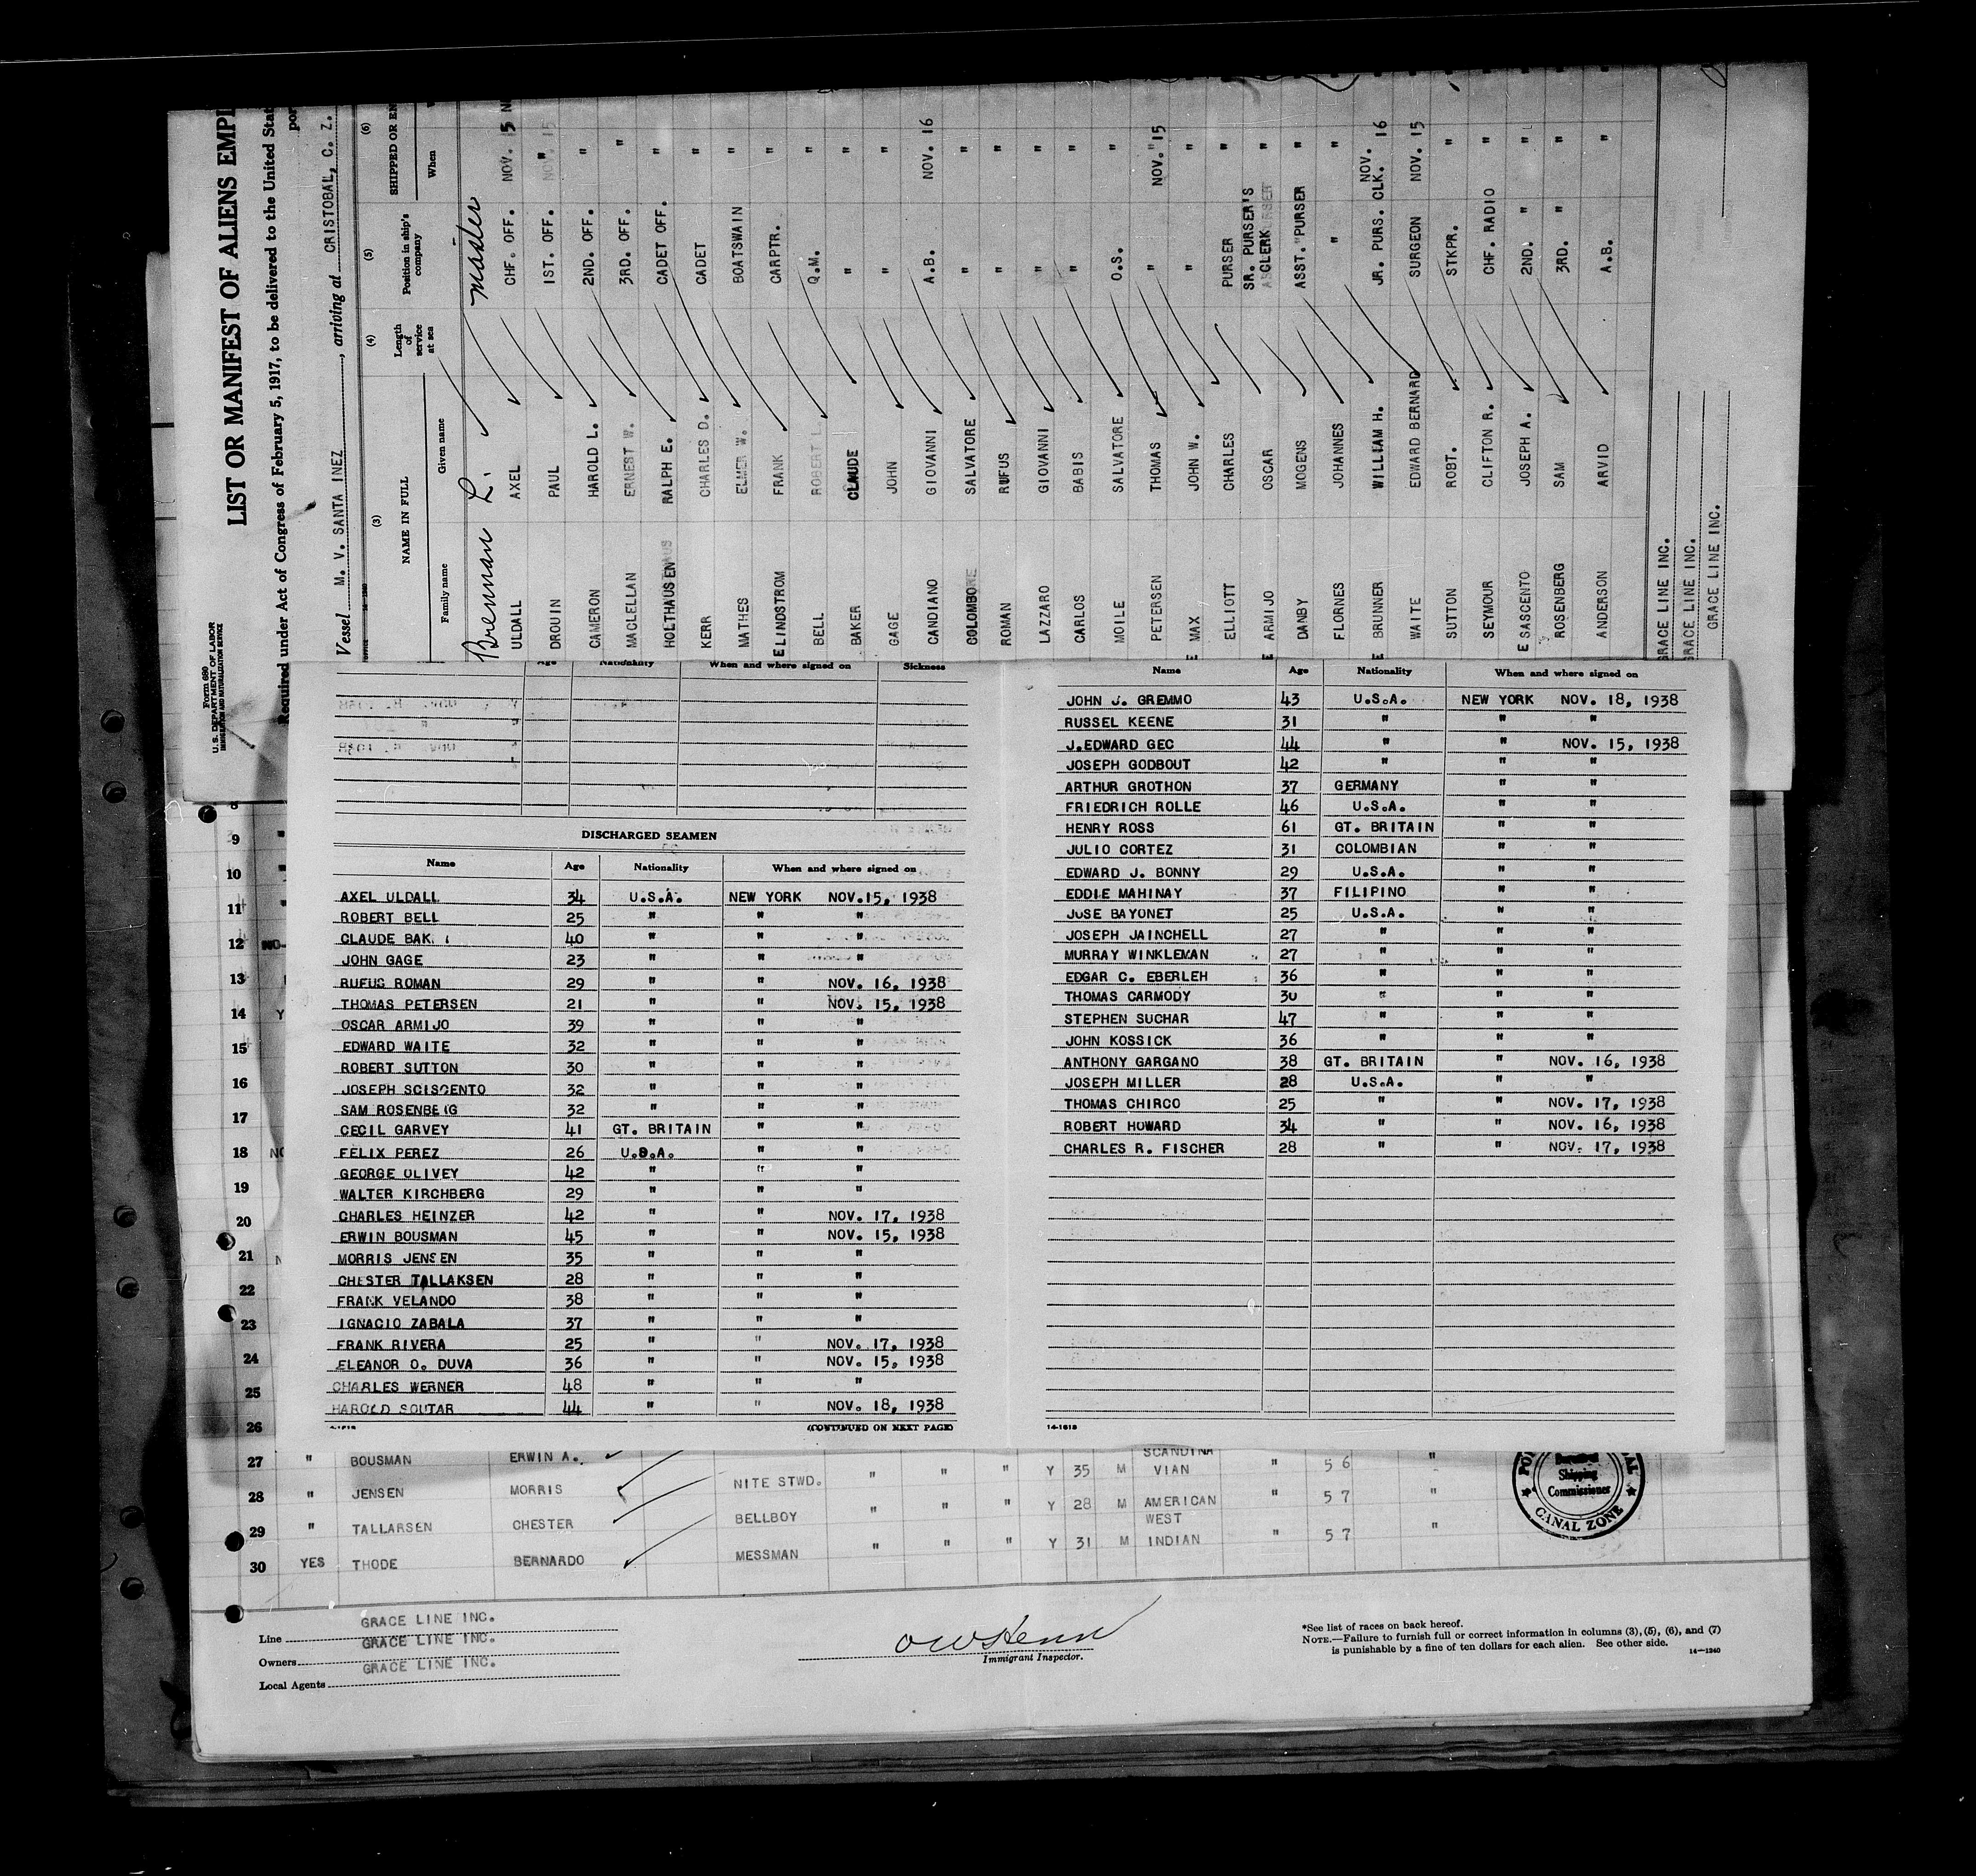 Form 680
U. S. DEPARTMENT OF LABOR
IMMIGRATION AND NATURALIZATION SERVICE
LIST OR MANIFEST OF ALIENS EMPL
Required under Act of Congress of February 5, 1917, to be delivered to the United Stat
por
Vessel M. V. SANTA INEZ, arriving at CRISTOBAL, C. Z.
(3) (4) (5) (6)
NAME IN FULL Length of service at sea Position in ship's company SHIPPED OR EN
Family name Given name When
Brennan L. Master
ULDALL AXEL CHF. OFF. NOV. 15
DROUIN PAUL 1ST. OFF. "
CAMERON HAROLD L. 2ND. OFF. "
MACLELLAN ERNEST W. 3RD. OFF. "
HOLTHAUSEN RALPH E. CADET OFF. "
KERR CHARLES D. CADET "
MATHES ELMER W. BOATSWAIN "
LINDSTROM FRANK CARPTR. "
BELL ROBERT L. Q.M. "
BAKER CLAUDE " "
GAGE JOHN " "
CANDIANO GIOVANNI A.B. NOV. 16
COLOMBO SALVATORE " "
ROMAN RUFUS " "
LAZZARO GIOVANNI " "
CARLOS BABIS " "
MOILE SALVATORE O.S. "
PETERSEN THOMAS " NOV. 15
MAX JOHN W. " "
ELLIOTT CHARLES PURSER "
ARMIJO OSCAR SR. PURSER'S CLERK "
DANBY MOGENS ASST. PURSER "
FLORNES JOHANNES " "
BRUNNER WILLIAM H. JR. PURS. CLK. NOV. 16
WAITE EDWARD BERNARD SURGEON NOV. 15
SUTTON ROBT. STKPR. "
SEYMOUR CLIFTON R. CHF. RADIO "
SASCENTO JOSEPH A. 2ND. " "
ROSENBERG SAM 3RD. " "
ANDERSON ARVID A.B. "
GRACE LINE INC.
GRACE LINE INC.
GRACE LINE INC.
Age Nationality When and where signed on Sickness
DISCHARGED SEAMEN
Name Age Nationality When and where signed on
AXEL ULDALL 34 U.S.A. NEW YORK NOV.15, 1938
ROBERT BELL 25 " " "
CLAUDE BAK 40 " " "
JOHN GAGE 23 " " "
RUFUS ROMAN 29 " " NOV. 16, 1938
THOMAS PETERSEN 21 " " NOV. 15, 1938
OSCAR ARMIJO 39 " " "
EDWARD WAITE 32 " " "
ROBERT SUTTON 30 " " "
JOSEPH SCISCENTO 32 " " "
SAM ROSENBE G 32 " " "
CECIL GARVEY 41 GT. BRITAIN " "
FELIX PEREZ 26 U.S.A. " "
GEORGE OLIVEY 42 " " "
WALTER KIRCHBERG 29 " " "
CHARLES HEINZER 42 " " NOV. 17, 1938
ERWIN BOUSMAN 45 " " NOV. 15, 1938
MORRIS JENSEN 35 " " "
CHESTER TALLAKSEN 28 " " "
FRANK VELANDO 38 " " "
IGNACIO ZABALA 37 " " "
FRANK RIVERA 25 " " NOV. 17, 1938
ELEANOR O. DUVA 36 " " NOV. 15, 1938
CHARLES WERNER 48 " " "
HAROLD SOUTAR 44 " " NOV. 18, 1938
(CONTINUED ON NEXT PAGE)
Name Age Nationality When and where signed on
JOHN J. GREMMO 43 U.S.A. NEW YORK NOV. 18, 1938
RUSSEL KEENE 31 " " "
J.EDWARD GEC 44 " " NOV. 15, 1938
JOSEPH GODBOUT 42 " " "
ARTHUR GROTHON 37 GERMANY " "
FRIEDRICH ROLLE 46 U.S.A. " "
HENRY ROSS 61 GT. BRITAIN " "
JULIO CORTEZ 31 COLOMBIAN " "
EDWARD J. BONNY 29 U.S.A. " "
EDDIE MAHINAY 37 FILIPINO " "
JOSE BAYONET 25 U.S.A. " "
JOSEPH JAINCHELL 27 " " "
MURRAY WINKLEMAN 27 " " "
EDGAR C. EBERLEH 36 " " "
THOMAS CARMODY 30 " " "
STEPHEN SUCHAR 47 " " "
JOHN KOSSICK 36 " " "
ANTHONY GARGANO 38 GT. BRITAIN " NOV. 16, 1938
JOSEPH MILLER 28 U.S.A. " "
THOMAS CHIRCO 25 " " NOV. 17, 1938
ROBERT HOWARD 34 " " NOV. 16, 1938
CHARLES R. FISCHER 28 " " NOV. 17, 1938
14-1618
8
9
10
11
12
13
14
15
16
17
18
19
20
21
22
23
24
25
26
27 " BOUSMAN ERWIN A.
28 " JENSEN MORRIS NITE STWD. " " " Y 35 M SCANDINAVIAN " 5 6 "
29 " TALLARSEN CHESTER BELLBOY " " " Y 28 M AMERICAN " 5 7 "
30 YES THODE BERNARDO MESSMAN " " " Y 31 M WEST INDIAN " 5 7 "
Shipping
Commissioner
CANAL ZONE
Line GRACE LINE INC.
Owners GRACE LINE INC.
Local Agents GRACE LINE INC.
Immigrant Inspector.
*See list of races on back hereof.
NOTE.—Failure to furnish full or correct information in columns (3), (5), (6), and (7)
is punishable by a fine of ten dollars for each alien. See other side.
14—1240